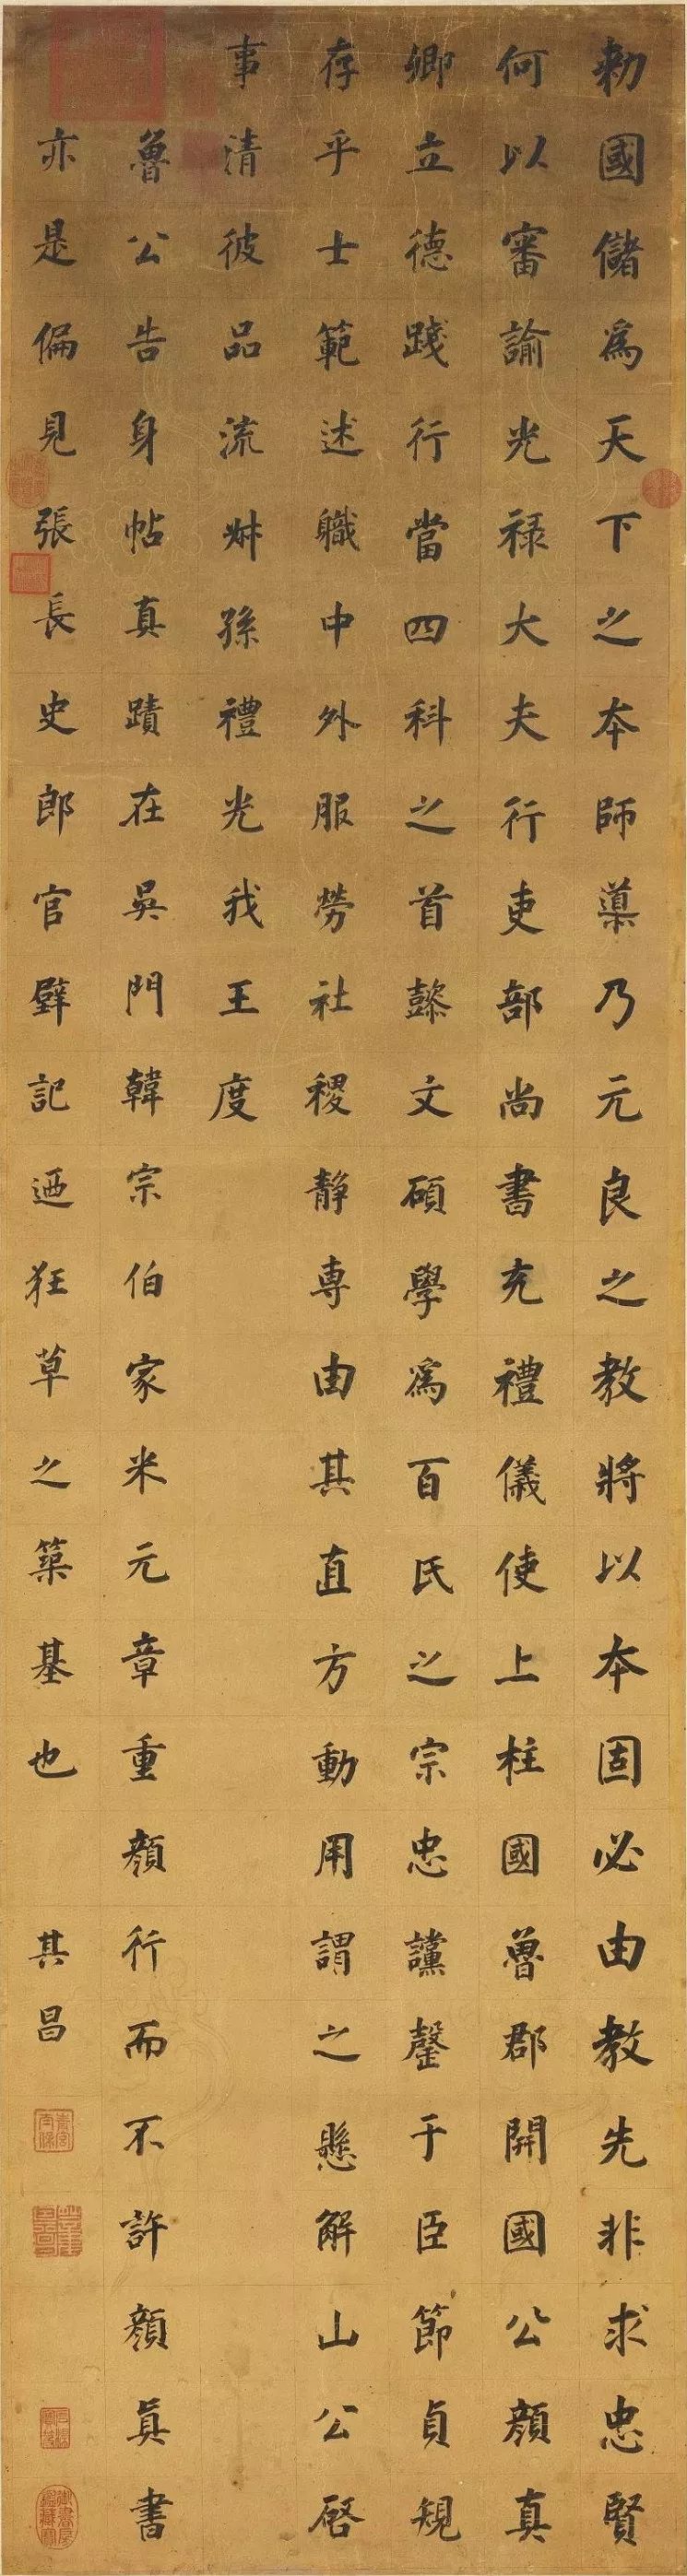 勑國儲爲天下之本師導乃元良之教將以本固必由教先非求忠賢
何以審諭光禄大夫行吏部尚書充禮儀使上柱國魯郡開國公顏真
卿立德踐行當四科之首懿文碩學爲百氏之宗忠讜罄于臣節貞規
存乎士範述職中外服勞社稷静專由其直方動用謂之懸解山公啓
事清彼品流叔孫禮光我王度
魯公告身帖真蹟在吳門韓宗伯家米元章重顏行而不許顏真書
亦是偏見張長史郎官壁記迺狂草之築基也 其昌